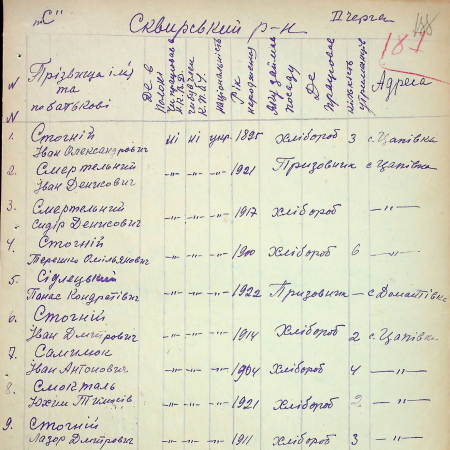 "С" Сквирський р-н ІІ черга
188
187
№№ Прізвище ім'я та по батькові
Національність Рік народження Яку займав посаду Де працював Кількість утриманців Адреса
1. Стогній Іван Олександрович ні ні укр. 1895 Хлібороб 3 с. Цапівка
2. Смертельний Іван Денисович -"- -"- -"- 1921 Призовник с. Цапівка
3. Смертельний Сидір Денисович -"- -"- -"- 1917 Хлібороб -"-
4. Стогній Терешко Омільянович -"- -"- -"- 1900 Хлібороб 6 -"-
5. Сідлецький Панас Кондратівич -"- -"- -"- 1922 Призовник - с. Домантівка
6. Стогній Іван Дмитрович -"- -"- -"- 1914 Хлібороб 2 с. Цапівка
7. Іван Антонович -"- -"- -"- 1904 Хлібороб 4 -"-
8. Смокталь Юхим -"- -"- -"- 1921 Хлібороб 2 -"-
9. Стогній Лазор Дмитрович -"- -"- -"- 1911 Хлібороб 3 -"-